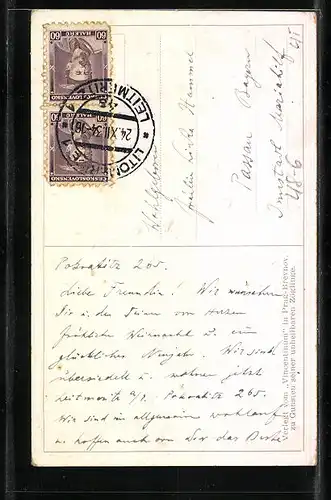 60 HALÉŘŮ
ČESKOSLOVENSKO
60 HALÉŘŮ
ČESKOSLOVENSKO
LITOMĚŘICE 1
24.XII.34-18
LEITMERITZ
Wohlgeboren
Passau Bayern
Innstadt Mariahilf
Pokratitz 205.
Liebe Freundin! Wir wünschen
Dir u. den Deinen von Herzen
fröhliche Weihnacht u. ein
glückliches Neujahr. Wir sind
übersiedelt u. wohnen jetzt
Leitmeritz a/E. Pokratitz 265.
Wir sind im allgemeinen wohlauf
u. hoffen auch von Dir das Beste
Verlegt vom "Vincentinum" in Prag-Břevnov,
zu Gunsten seiner unheilbaren Zöglinge.